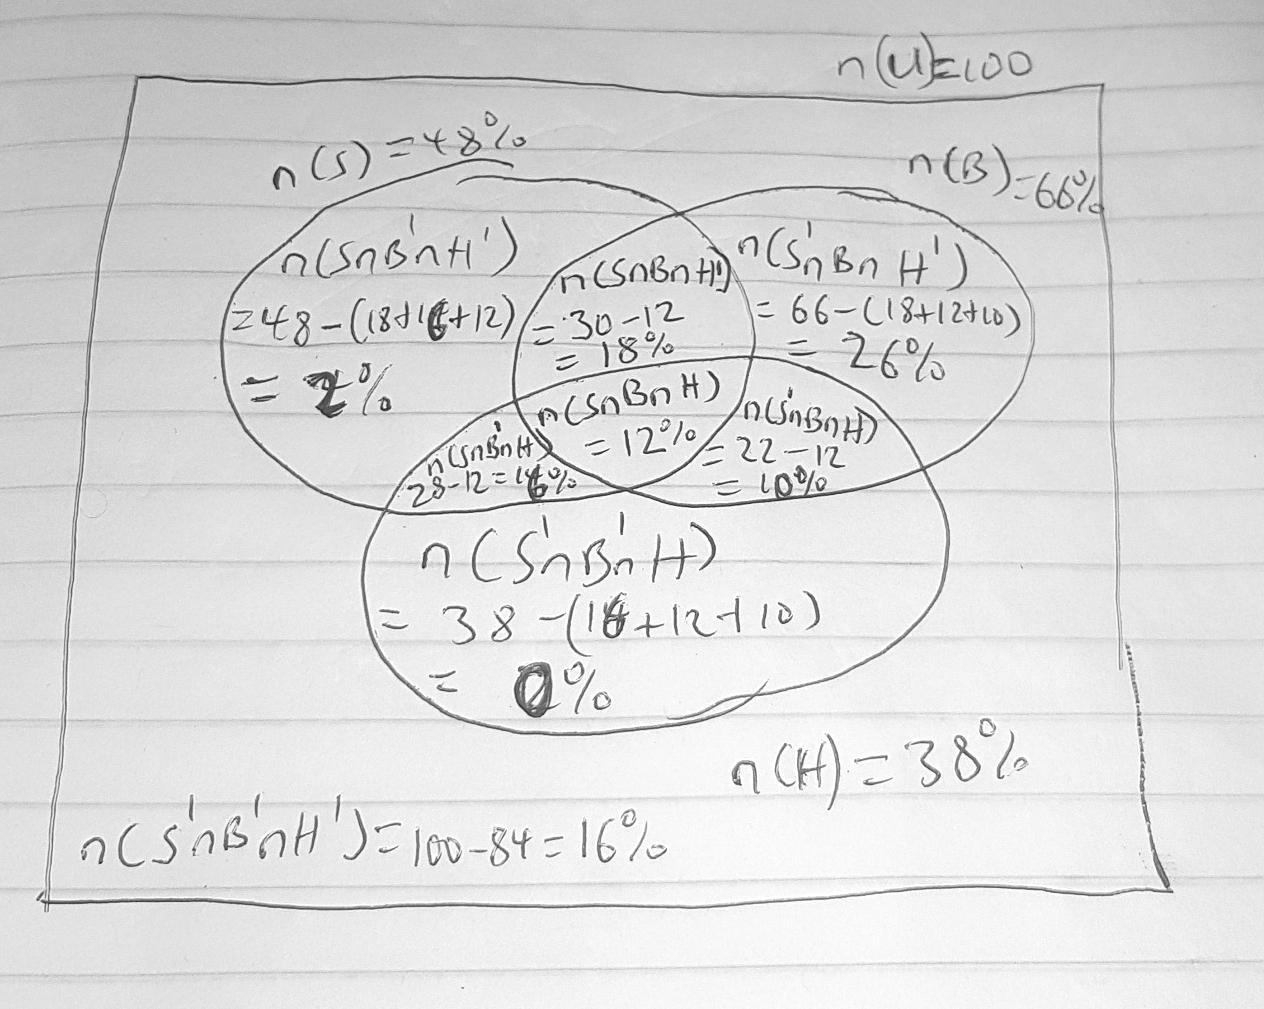 n(U)=100
n(S)=48%
n(B)=66%
n(S∩B'∩H')
=48-(18+16+12)
=2%
n(S∩B∩H')
=30-12
=18%
n(S'∩B∩H')
=66-(18+12+10)
=26%
n(S∩B∩H)
=12%
n(S∩B'∩H)
28-12=16%
n(S'∩B∩H)
=22-12
=10%
n(S'∩B'∩H)
=38-(16+12+10)
=0%
n(H)=38%
n(S'∩B'∩H')=100-84=16%